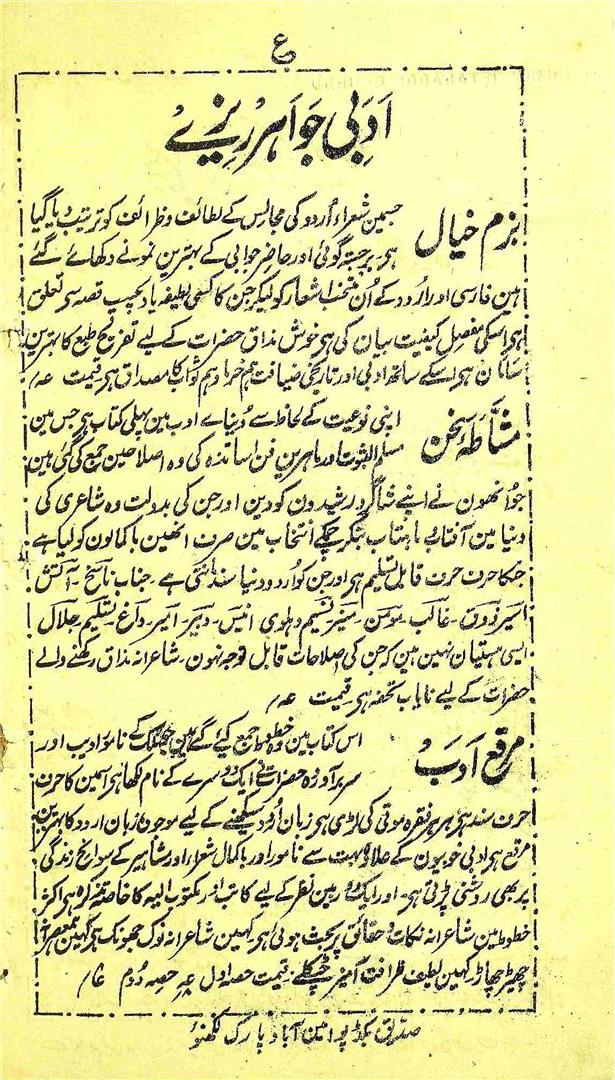 ع
اَدَبی جَوَاہر ریزے
بزم خیال جسمین شعراء اُردو کی مجالس کے لطائف و ظرائف کو ترتیب دیا گیا
ہر برجستہ گوئی اور حاضر جوابی کے بہترین نمونے دکھائے گئے
ہین فارسی اور اردو کے اُن منتخب اشعار کو لیکر جن کا کسی لطیفہ یا دلچسپ قصہ سے تعلق
ہر اسکی مفصل کیفیت بیان کی ہر خوش مذاق حضرات کے لیے تفریح طبع کا بہترین
سامان ہر اسکے ساتھ ادبی اور تاریخی ضیافت ہم خرما و ہم ثواب کا مصداق ہر قیمت عہ/
مشّاطۂ سخن اپنی نوعیت کے لحاظ سے دُنیاے ادب مین پہلی کتاب ہر جس مین
مسلم الثبوت اور ماہرین فن اساتذہ کی وہ اصلاحین جمع کی گئی ہین
جو اُنھون نے اپنے شاگرد رشیدون کو دین اور جن کی بدولت وہ شاعری کی
دنیا مین آفتاب ماہتاب بنکر چمکے انتخاب مین صرف انھین باکمالون کو لیا ہے
جنکا حرف حرف قابل تسلیم ہر اور جن کو اُردو دنیا سند مانتی ہے ۔ جناب ناسخ ۔ آتش
اسیر ذوق ۔ غالب ۔ مومن ۔ منیر ۔ نسیم دہلوی انیس ۔ دبیر امیر ۔ داغ ۔ تسلیم جلال
ایسی ہستیان نہین ہین کہ جن کی اصلاحات قابل توجہ نہون ۔ شاعرانہ مذاق رکھنے والے
حضرات کے لیے نایاب تحفہ ہر قیمت عہ/
مرقع اَدَب اس کتاب مین وہ خطوط جمع کیے گئے ہین جو ملک کے نامور ادیب اور
سربرآوردہ حضرات نے ایک دوسرے کے نام لکھا ہر اسمین کا حرف
حرف سند ہر ہر ہر فقرہ موتی کی لڑی ہر زبان اُردو سیکھنے کے لیے موجودہ زبان اردو کا بہترین
مرقع ہر ادبی خوبیون کے علاوہ بہت سے نامور اور باکمال شعراء اور مشاہیر کے سوانح زندگی
پر بھی روشنی پڑتی ہر ۔ اور ایک دوربین نظر کے لیے کاتب اور مکتوب الیہ کا خاصہ تذکرہ ہر اکثر
خطوط مین شاعرانہ نکات و حقائق پر بحث ہوئی ہر کہین شاعرانہ نوک جھونک ہر کہین
چھیڑ چھاڑ کہین لطیف ظرافت آمیز چٹکلے ۔ قیمت حصہ اول عہ حصہ دُوم
صدیق بکڈپو امین آباد پارک لکھنؤ